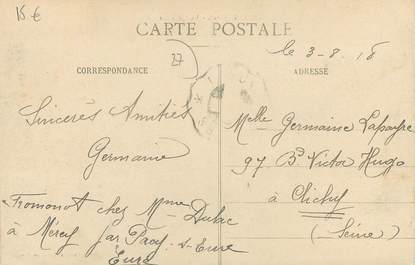 15 €
CARTE POSTALE
27
le 3-8-16
CORRESPONDANCE
ADRESSE
Sincères Amitiés
Germaine
Fromonot chez Mme Dubac
à Mérey par Pacy-s-Eure
Eure
Melle Germaine Lapayre
97 Bd Victor Hugo
à Clichy
(Seine)